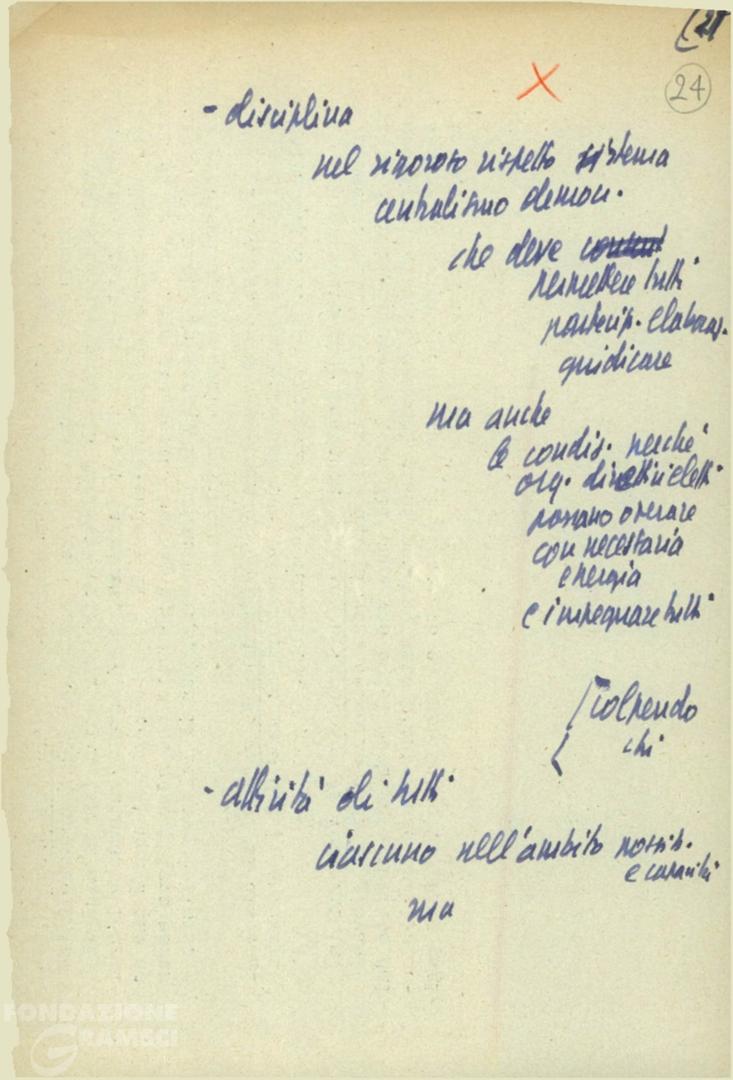 (21
24
- disciplina
nel rigoroso rispetto sistema
centralismo democr.
che deve
permettere tutti
partecip. elaboraz.
giudicare
ma anche
le condiz. perché
org. direttivi eletti
possano operare
con necessaria
energia
e impegnare tutti
[colpendo
chi
- attività di tutti
ciascuno nell'ambito possib.
e capacità
ma
FONDAZIONE
GRAMSCI